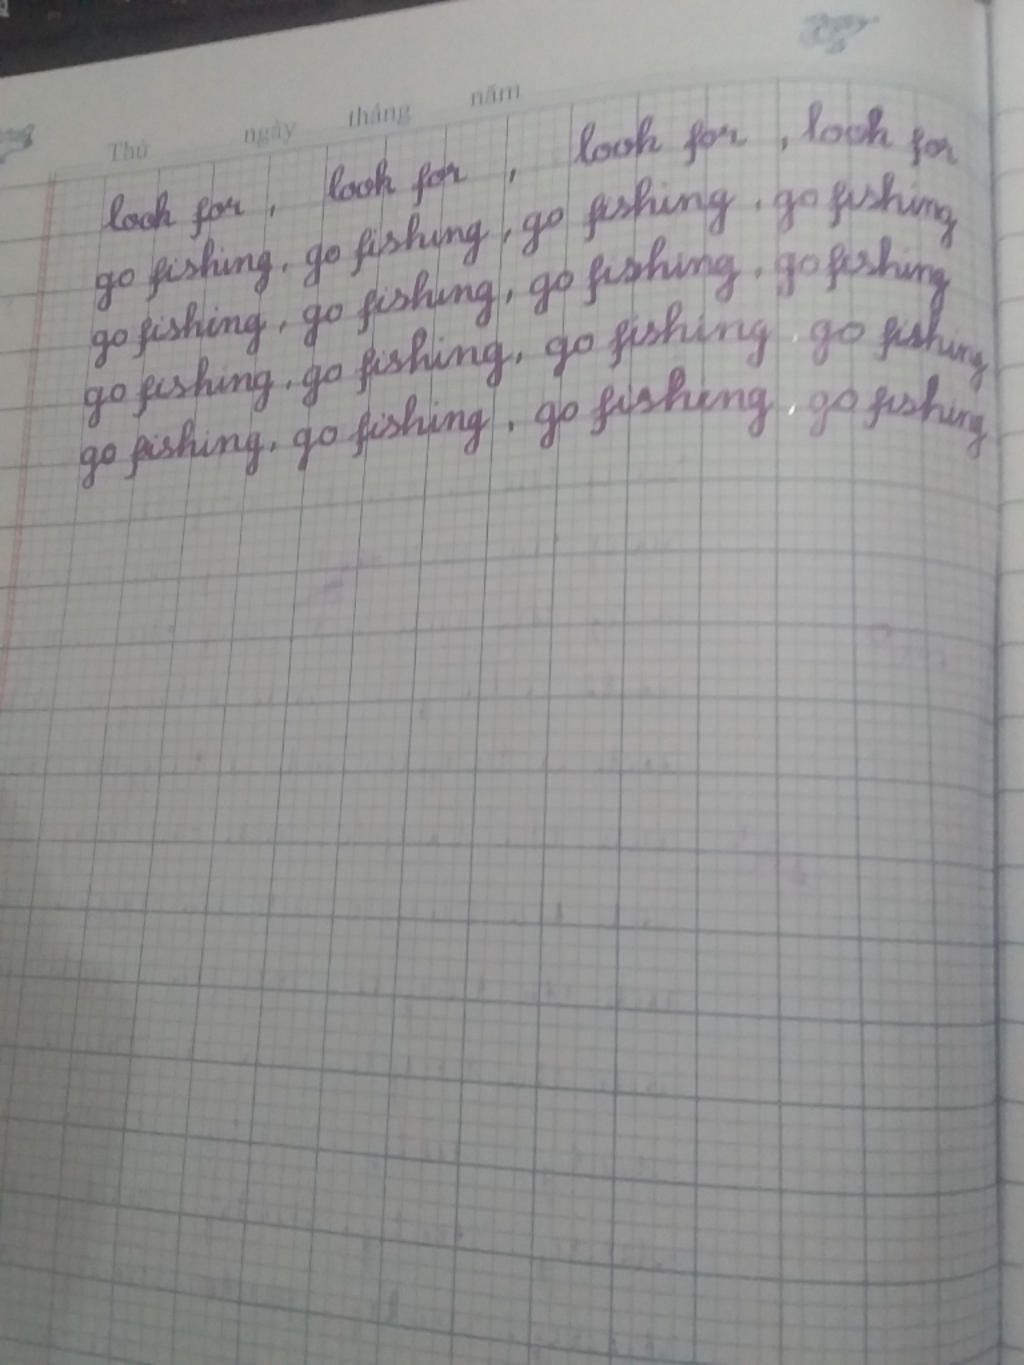 Thứ ngày tháng năm
look for, look for, look for, look for
go fishing, go fishing, go fishing, go fishing
go fishing, go fishing, go fishing, go fishing
go fishing, go fishing, go fishing, go fishing
go fishing, go fishing, go fishing, go fishing